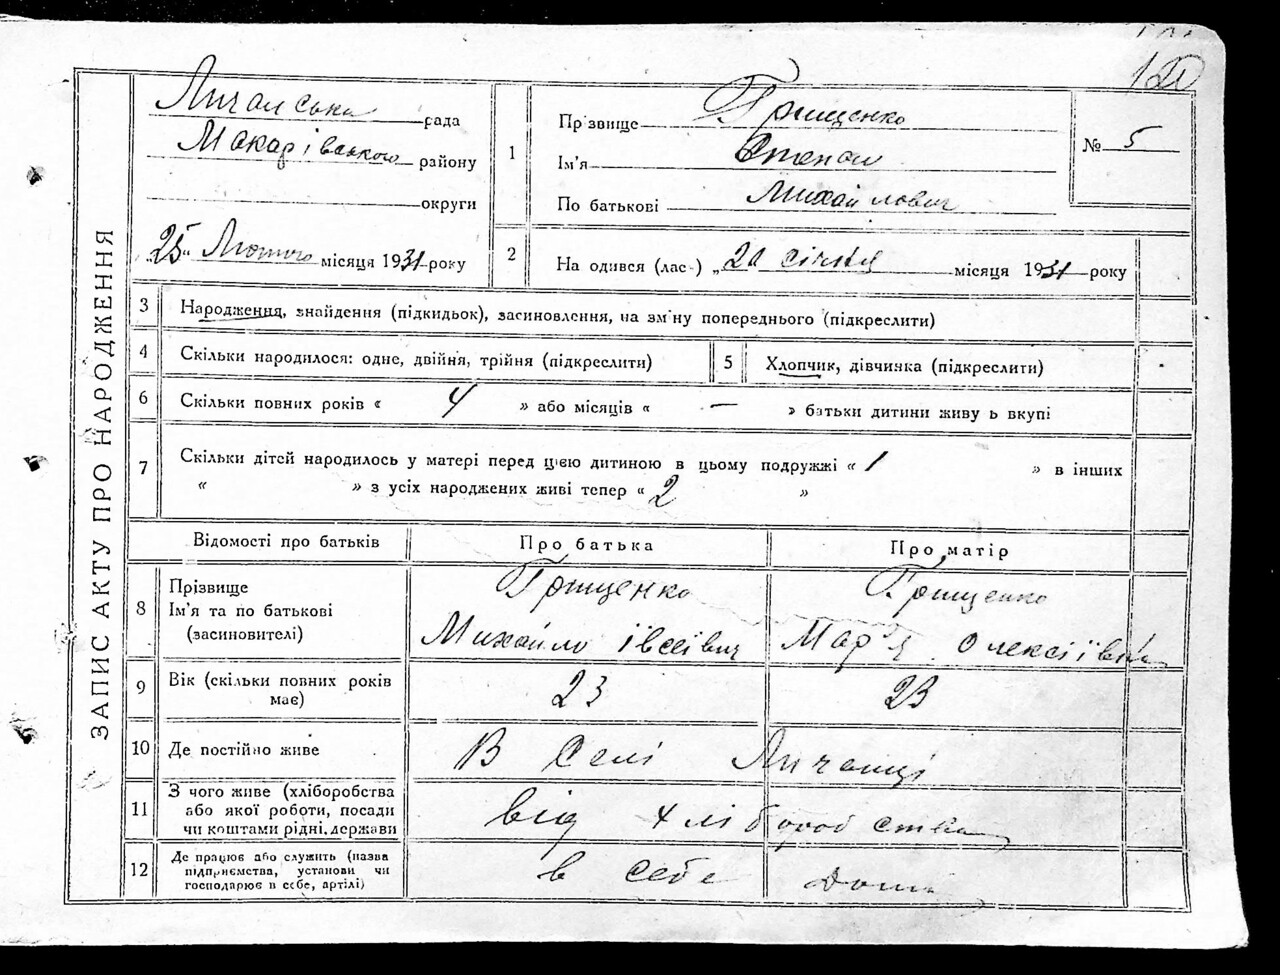 ЗАПИС АКТУ ПРО НАРОДЖЕННЯ
Личанська рада
Макарівського району
округи
„25" Лютого місяця 1931 року
1 Прізвище Грищенко
Ім'я Степан
По батькові Михайлович
№ 5
2 На одився (лась) „ 21 січня місяця 1931 року
3 Народження, знайдення (підкидьок), засиновлення, на зм'ну попереднього (підкреслити)
4 Скільки народилося: одне, двійня, трійня (підкреслити)
5 Хлопчик, дівчинка (підкреслити)
6 Скільки повних років « 4 » або місяців « — » батьки дитини живу ь вкупі
7 Скільки дітей народилось у матері перед цією дитиною в цьому подружжі « 1 » в інших
« » з усіх народжених живі тепер « 2 »
Відомості про батьків Про батька Про матір
8 Прізвище Грищенко Грищенко
Ім'я та по батькові Михайло Івсеївич Мар'я Олексіївна
(засиновителі)
9 Вік (скільки повних років 23 23
має)
10 Де постійно живе В Селі Личанці
11 З чого живе (хліборобства
або якої роботи, посади від хліборобства
чи коштами рідні, держави
12 Де працює або служить (назва
підприємства, установи чи в себе дома
господарює в себе, артілі)